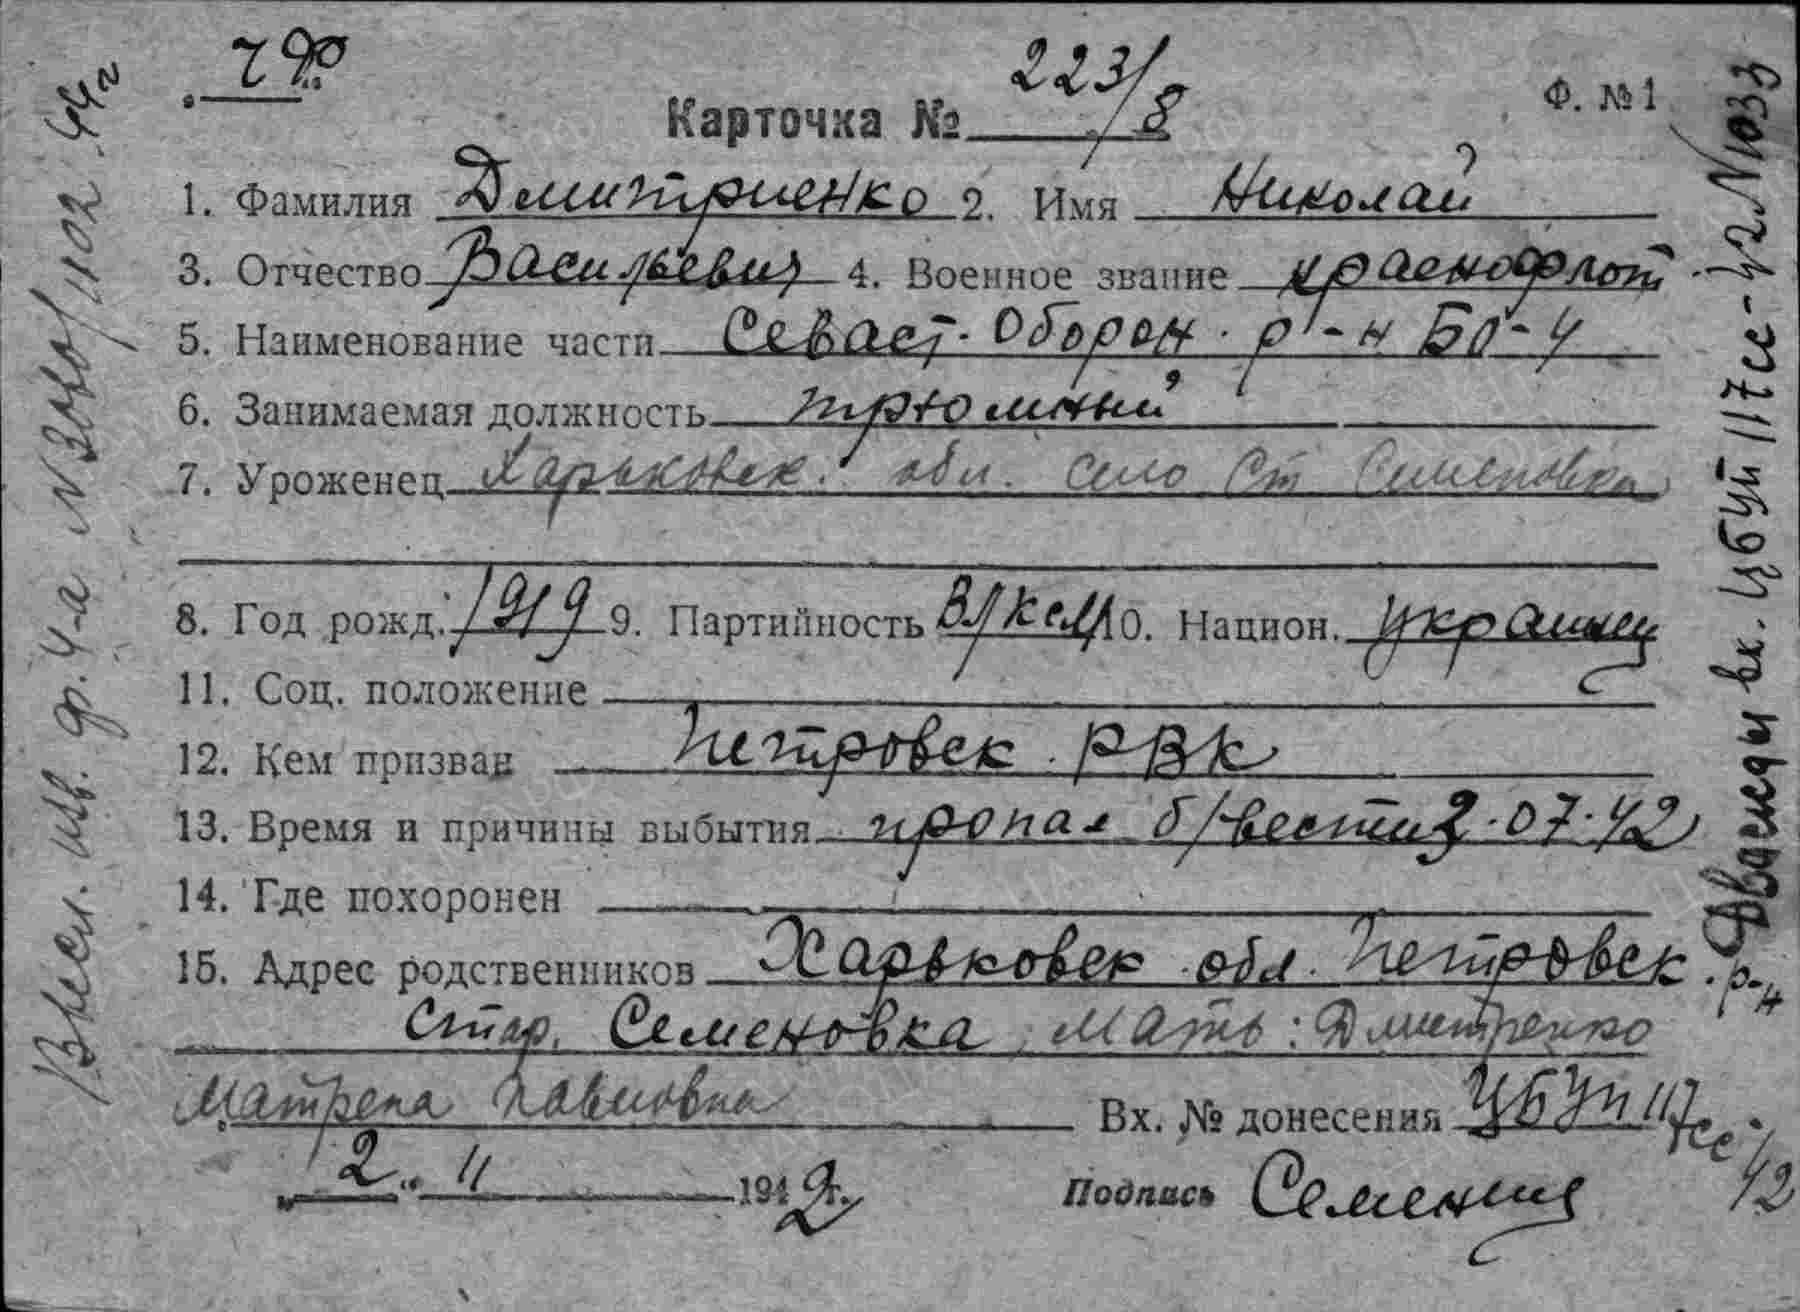 790
Карточка № 223/8
Ф. № 1
1. Фамилия Дмитриенко 2. Имя Николай
3. Отчество Васильевич 4. Военное звание краснофлот
5. Наименование части Севаст. Оборон. р-н БО-4
6. Занимаемая должность трюмный
7. Уроженец Харьковск. обл. село Ст Семеновка
8. Год рожд. 1919 9. Партийность ВЛКСМ 10. Национ. украинец
11. Соц. положение
12. Кем призван Петровск. РВК
13. Время и причины выбытия пропал б/вести 3.07.42
14. Где похоронен
15. Адрес родственников Харьковск обл. Петровск. р-н
Стар. Семеновка, Мать: Дмитренко
Матрена Павловна
Вх. № донесения ЦБУП 117сс/42
"2" 11 1942 г.
Подпись
Высл. изв. ф. 4-а N 3080/1102 44 г
Дважды вх. ЦБУП 117сс-42 N 1033